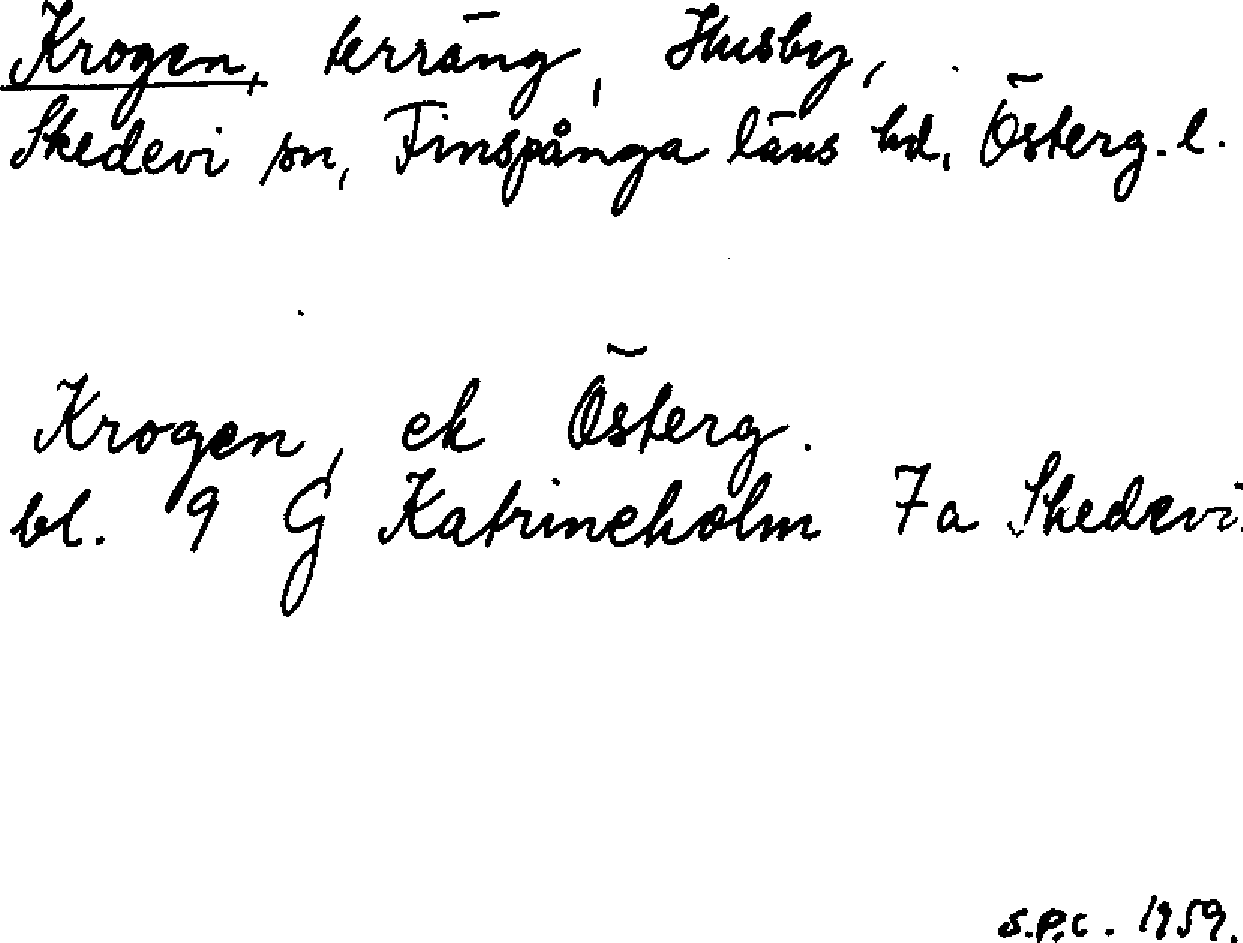 Krogen, terräng, Husby,
Skedevi sn, Finspånga läns hd, Österg. l.
Krogen, ek Österg.
bl. 9 G Katrineholm 7a Skedevi.
S.P.C. 1959.